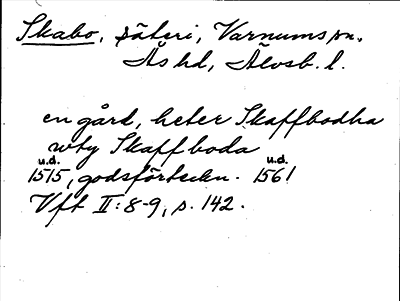 Skabo, säteri, Varnums sn.
Ås hd, Älvsb. l.
en gård, heter Skaffbodha
wty Skaffboda
u.d. u.d.
1515, godsförteckn. 1561
Vft II:8-9, s. 142.